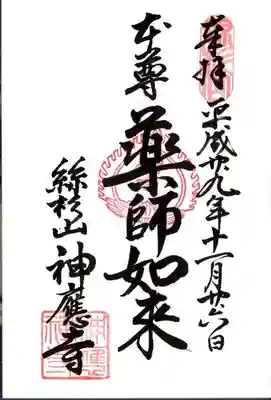 奉拝 平成廿九年十一月廿六日
本尊 薬師如来
絲杉山 神應寺